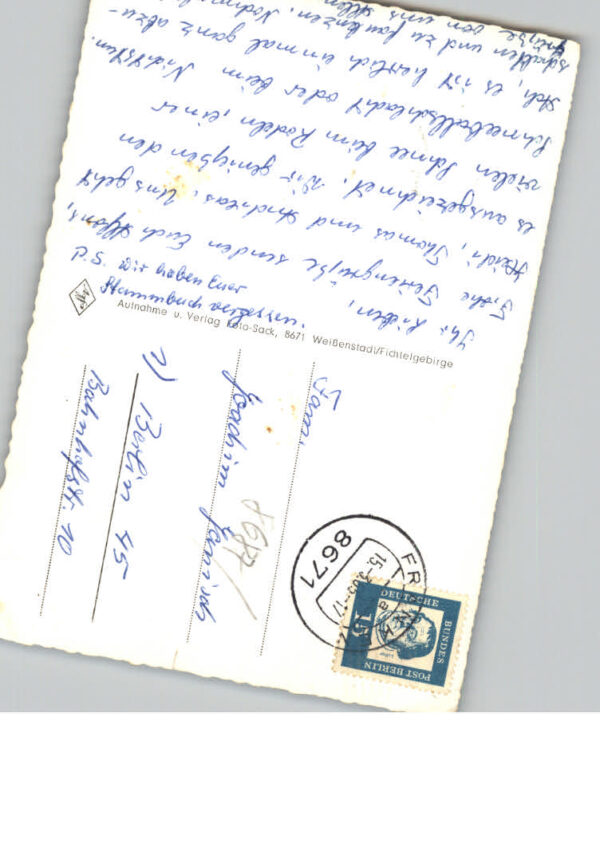 Ihr Lieben,
Frohe Feriengrüße senden Euch Alfons,
Heidi, Thomas und Andreas. Uns geht
es ausgezeichnet. Wir genießen den
vielen Schnee beim Rodeln, einer
Schneeballschlacht oder beim Nichtstun.
Ach, es ist herrlich einmal ganz abzu-
schalten und zu faulenzen. Nochmals
Grüße von uns Allen
P.S. Wir haben Euer
Stammbuch
Aufnahme u. Verlag Foto-Sack, 8671 Weißenstadt/Fichtelgebirge
Fam.
Joachim
1) Berlin 45
Bahnhofstr. 10
8671
15
DEUTSCHE
BUNDES
POST BERLIN
15